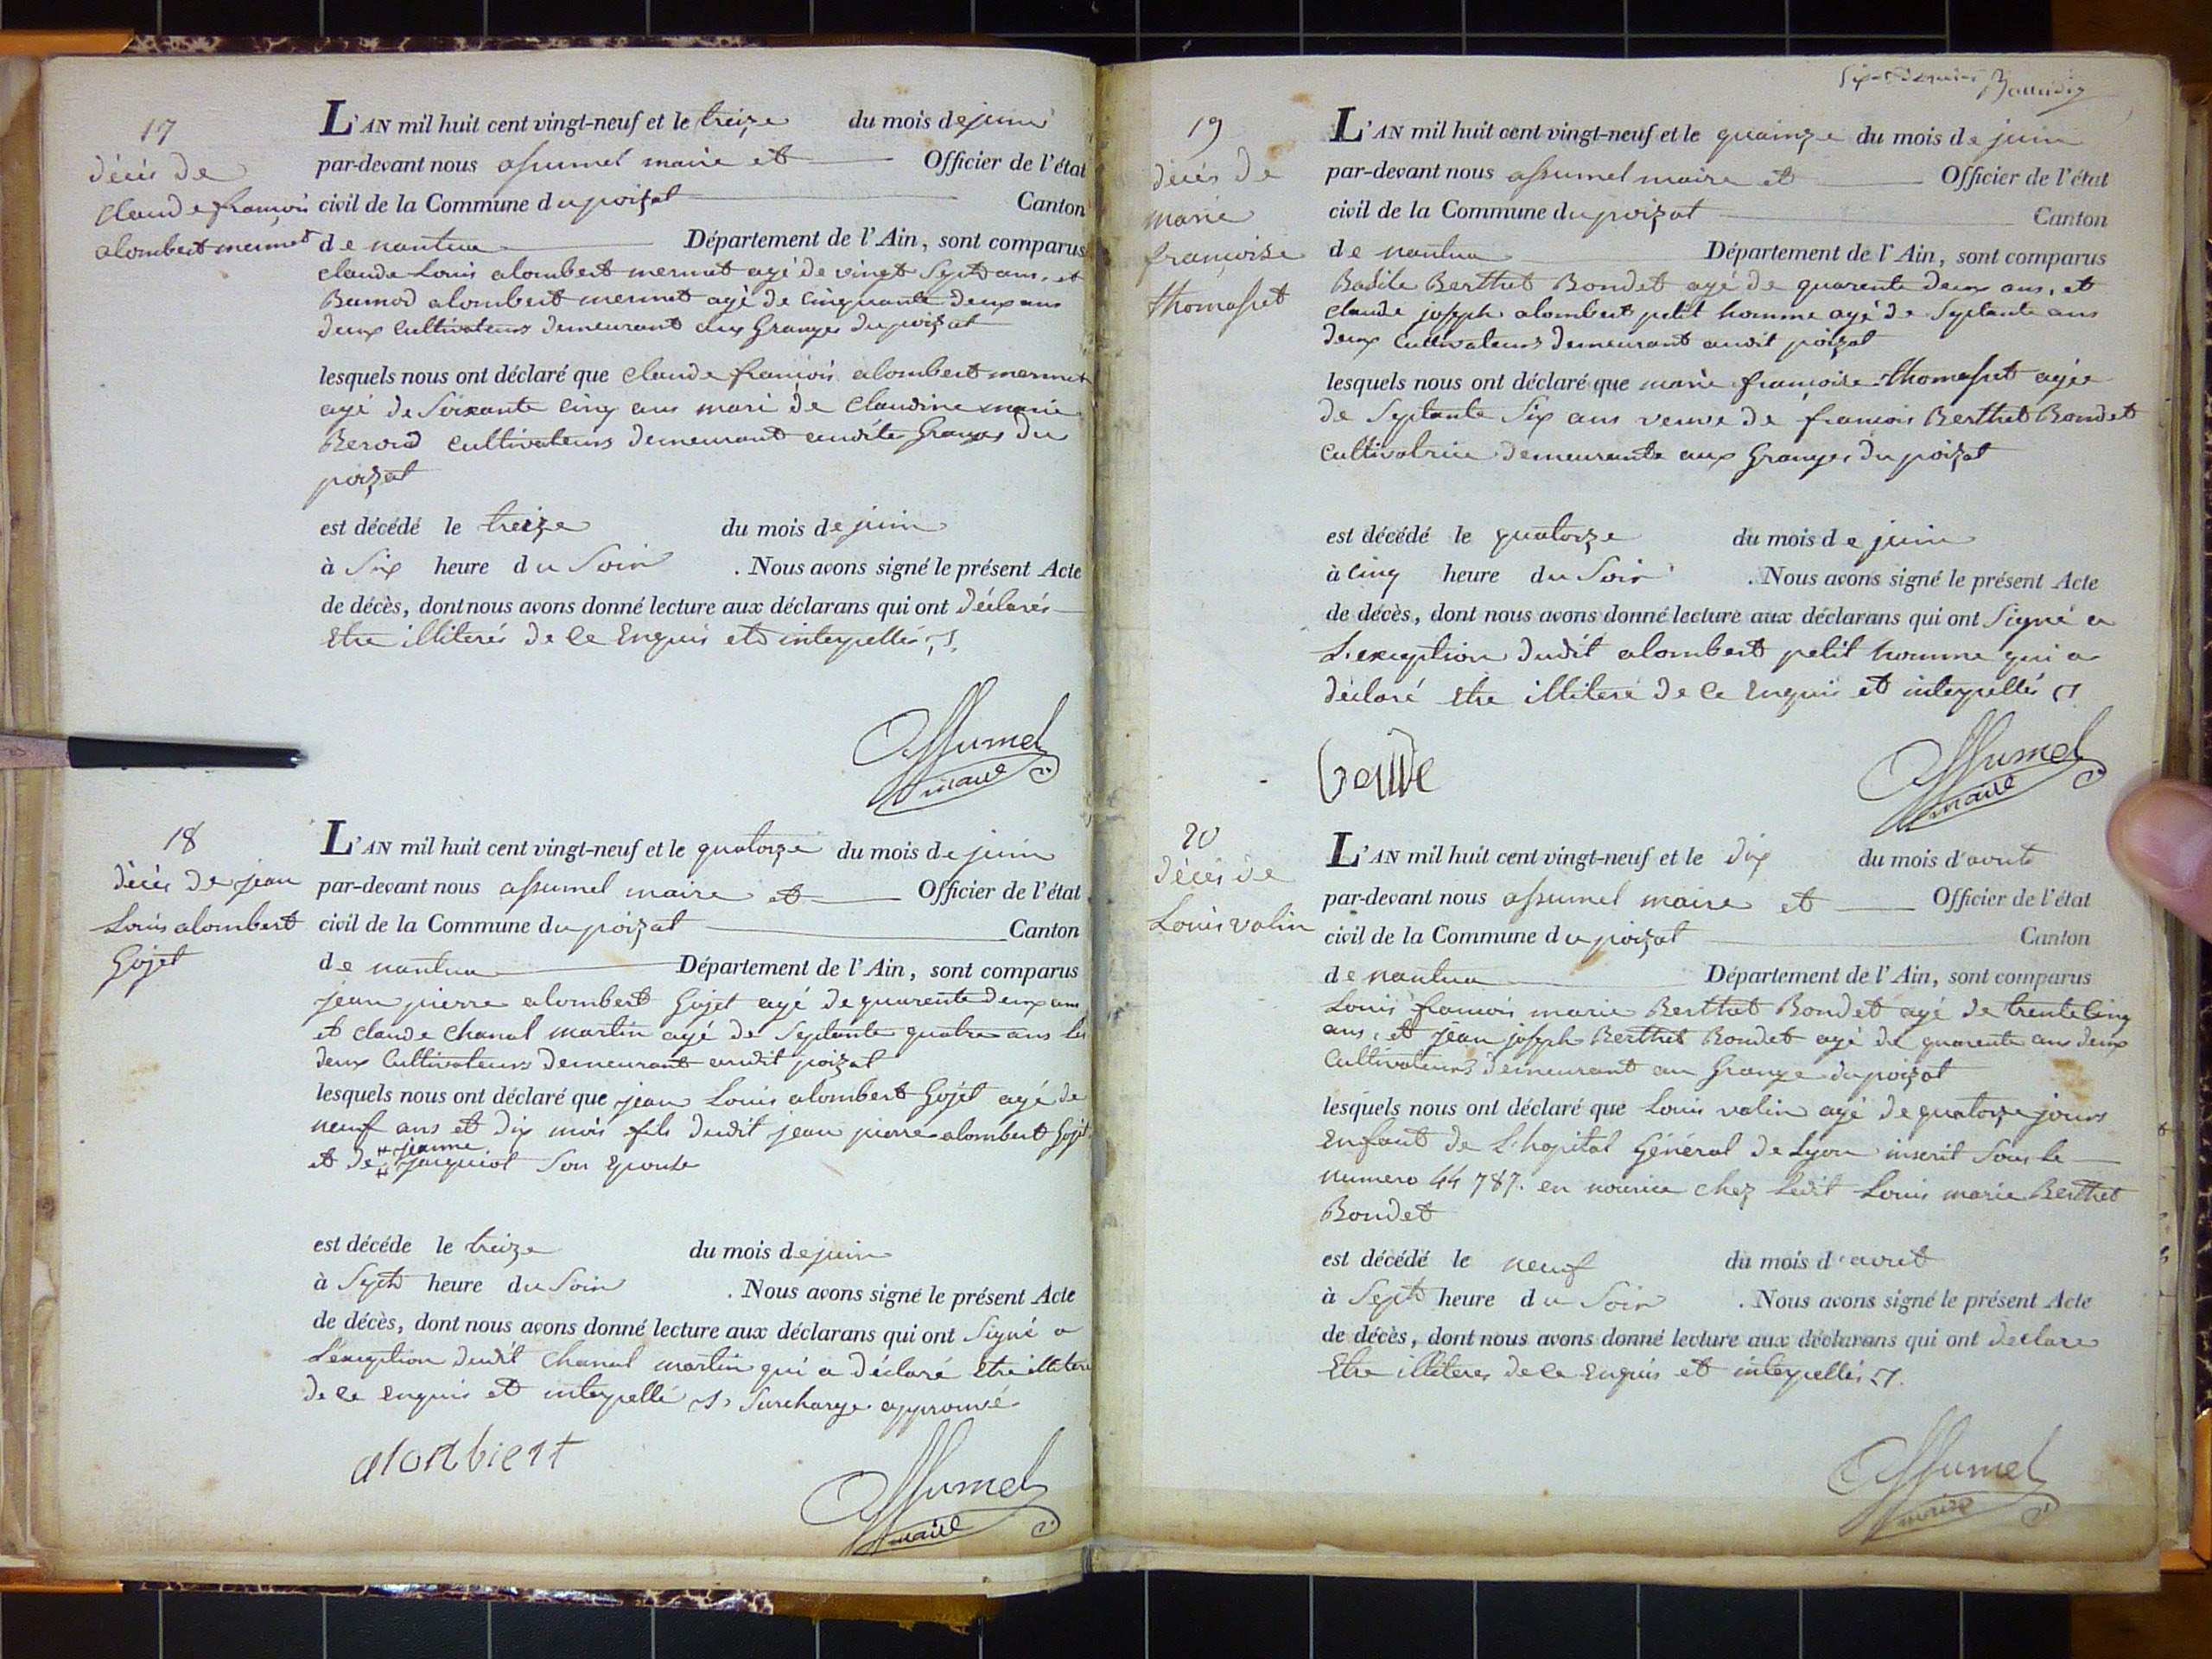 17
décès de
claude françois
alombert mermet
L'AN mil huit cent vingt-neuf et le treize du mois de juin
par-devant nous assumel maire et Officier de l'état
civil de la Commune du poizat Canton
de nantua Département de l'Ain, sont comparus
claude Louis alombert mermet agé de vingt Sept ans, et
alombert mermet agé de Cinquante deux ans
deux Cultivateurs demeurant aux Granges du poizat
lesquels nous ont déclaré que claude françois alombert mermet
agé de Soixante Cinq ans mari de Claudine marie
Beroud Cultivateurs demeurant audites Granges du
poizat
est décédé le treize du mois de juin
à Six heure du Soir . Nous avons signé le présent Acte
de décès, dont nous avons donné lecture aux déclarans qui ont déclarés
Etre illiterés de ce Enquis et interpellés
assumel
maire
18
décès de jean
Louis alombert
Gojet
L'AN mil huit cent vingt-neuf et le quatorze du mois de juin
par-devant nous assumel maire et Officier de l'état
civil de la Commune du poizat Canton
de nantua Département de l'Ain, sont comparus
jean pierre alombert Gojet agé de quarente deux ans
et claude Chanal martin agé de Septante quatre ans les
deux Cultivateurs demeurant audit poizat
lesquels nous ont déclaré que jean Louis alombert Gojet agé de
neuf ans et dix mois fils dudit jean pierre alombert Gojet
jeanne
et de jacquiot Son Epouse
est décédé le treize du mois de juin
à Sept heure du Soir . Nous avons signé le présent Acte
de décès, dont nous avons donné lecture aux déclarans qui ont Signé a
L'exeption dudit Chanal martin qui a déclaré Etre illiteré
de ce enquis et interpellé Surcharge approuvé
alonbiert
assumel
maire
19
décès de
marie
françoise
thomasset
L'AN mil huit cent vingt-neuf et le quainze du mois de juin
par-devant nous assumel maire et Officier de l'état
civil de la Commune du poizat Canton
de nantua Département de l'Ain, sont comparus
Basile Berthet Bondet agé de quarente deux ans, et
claude joseph alombert petit homme agé de Septante ans
deux Cultivateurs demeurant audit poizat
lesquels nous ont déclaré que marie françoise thomasset agée
de Septante Six ans veuve de françois Berthet Bondet
Cultivatrice demeurante aux Granges du poizat
est décédé le quatorze du mois de juin
à Cinq heure du Soir . Nous avons signé le présent Acte
de décès, dont nous avons donné lecture aux déclarans qui ont Signé a
L'exeption dudit alombert petit homme qui a
déclaré Etre illiteré de ce Enquis et interpellés
assumel
maire
20
décès de
Louis valin
L'AN mil huit cent vingt-neuf et le dix du mois d'aout
par-devant nous assumel maire et Officier de l'état
civil de la Commune du poizat Canton
de nantua Département de l'Ain, sont comparus
Louis françois marie Berthet Bondet agé de trente Cinq
ans, et jean joseph Berthet Bondet agé de quarente ans deux
Cultivateurs demeurant au Grange du poizat
lesquels nous ont déclaré que Louis valin agé de quatorze jours
Enfant de L'hopital Général de Lyon inscrit Sous le
numero 44787. en nourice chez Ledit Louis marie Berthet
Bondet
est décédé le neuf du mois d'aout
à Sept heure du Soir . Nous avons signé le présent Acte
de décès, dont nous avons donné lecture aux déclarans qui ont declare
Etre illiteres de ce Enquis et interpellés
assumel
maire